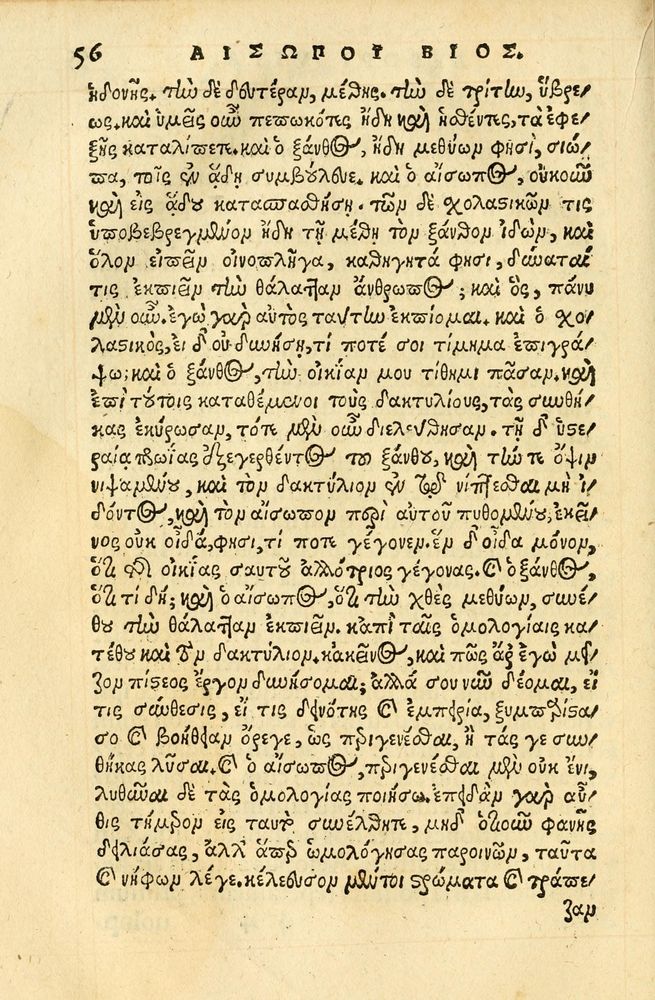 56 ΑΙΣΩΠΟΥ ΒΙΟΣ.
ἡδονῆς. τὴν δὲ δευτέραν, μέθης. τὴν δὲ τρίτην, ὕβρε/
ως. καὶ ὑμεῖς οὖν πεπωκότες ἤδη καὶ ἡσθέντες, τὰ ἐφε/
ξῆς καταλίπετε. καὶ ὁ ξάνθος, ἤδη μεθύων φησὶ, σιώ/
πα, τοῖς ἐν ᾅδῃ συμβούλευε. καὶ ὁ αἴσωπος, οὐκοῦν
καὶ εἰς ᾅδου κατασπασθήσῃ. τῶν δὲ σχολαστικῶν τις
ὑποβεβρεγμένον ἤδη τῇ μέθῃ τὸν ξάνθον ἰδὼν, καὶ
ὅλον εἰπεῖν οἰνοπλῆγα, καθηγητά φησι, δύναταί
τις ἐκπιεῖν τὴν θάλατταν ἄνθρωπος; καὶ ὃς, πάνυ
μὲν οὖν. ἐγὼ γὰρ αὐτὸς ταύτην ἐκπίομαι. καὶ ὁ σχο/
λαστικὸς, εἰ δ' οὐ δυνήσῃ, τί ποτέ σοι τίμημα ἐπιγρά/
ψω; καὶ ὁ ξάνθος, τὴν οἰκίαν μου τίθημι πᾶσαν. καὶ
ἐπὶ τούτοις καταθέμενοι τοὺς δακτυλίους, τὰς συνθή/
κας ἐκύρωσαν, τότε μὲν οὖν διελύθησαν. τῇ δ' ὑστε/
ραίᾳ πρωΐας ἐξεγερθέντος τοῦ ξάνθου, καὶ τήν τε ὄψιν
νιψαμένου, καὶ τὸν δακτύλιον ἐν τῷ νίπτεσθαι μὴ ἰ/
δόντος, καὶ τὸν αἴσωπον περὶ αὐτοῦ πυθομένου, ἐκεῖ/
νος οὐκ οἶδά, φησι, τί ποτε γέγονεν. ἓν δ' οἶδα μόνον,
ὅτι τῆς οἰκίας σαυτοῦ ἀλλότριος γέγονας. καὶ ὁ ξάνθος,
ὅτι τί δή; καὶ ὁ αἴσωπος, ὅτι τὴν χθὲς μεθύων, συνέ/
θου τὴν θάλατταν ἐκπιεῖν. κἀπὶ ταῖς ὁμολογίαις κα/
τέθου καὶ τὸν δακτύλιον. κἀκεῖνος, καὶ πῶς ἄρ' ἐγὼ μεῖ/
ζον πίστεος ἔργον δυνήσομαι; ἀλλά σου νῦν δέομαι, εἴ
τις σύνθεσις, εἴ τις δεινότης καὶ ἐμπειρία, ξυμπόρισα/
σο καὶ βοήθειαν ὄρεγε, ὡς περιγενέσθαι, ἢ τάς γε συν/
θήκας λῦσαι. καὶ ὁ αἴσωπος, περιγενέσθαι μὲν οὐκ ἔνι,
λυθῆναι δὲ τὰς ὁμολογίας ποιήσω. ἐπειδὰν γὰρ αὖ/
θις τήμερον εἰς ταυτὸ συνέλθητε, μηδ' ὁτιοῦν φανῇς
δειλιάσας, ἀλλ' ἅπερ ὡμολόγησας παροινῶν, ταῦτα
καὶ νήφων λέγε. κέλευσον μέντοι στρώματα καὶ τράπε/
ζαν